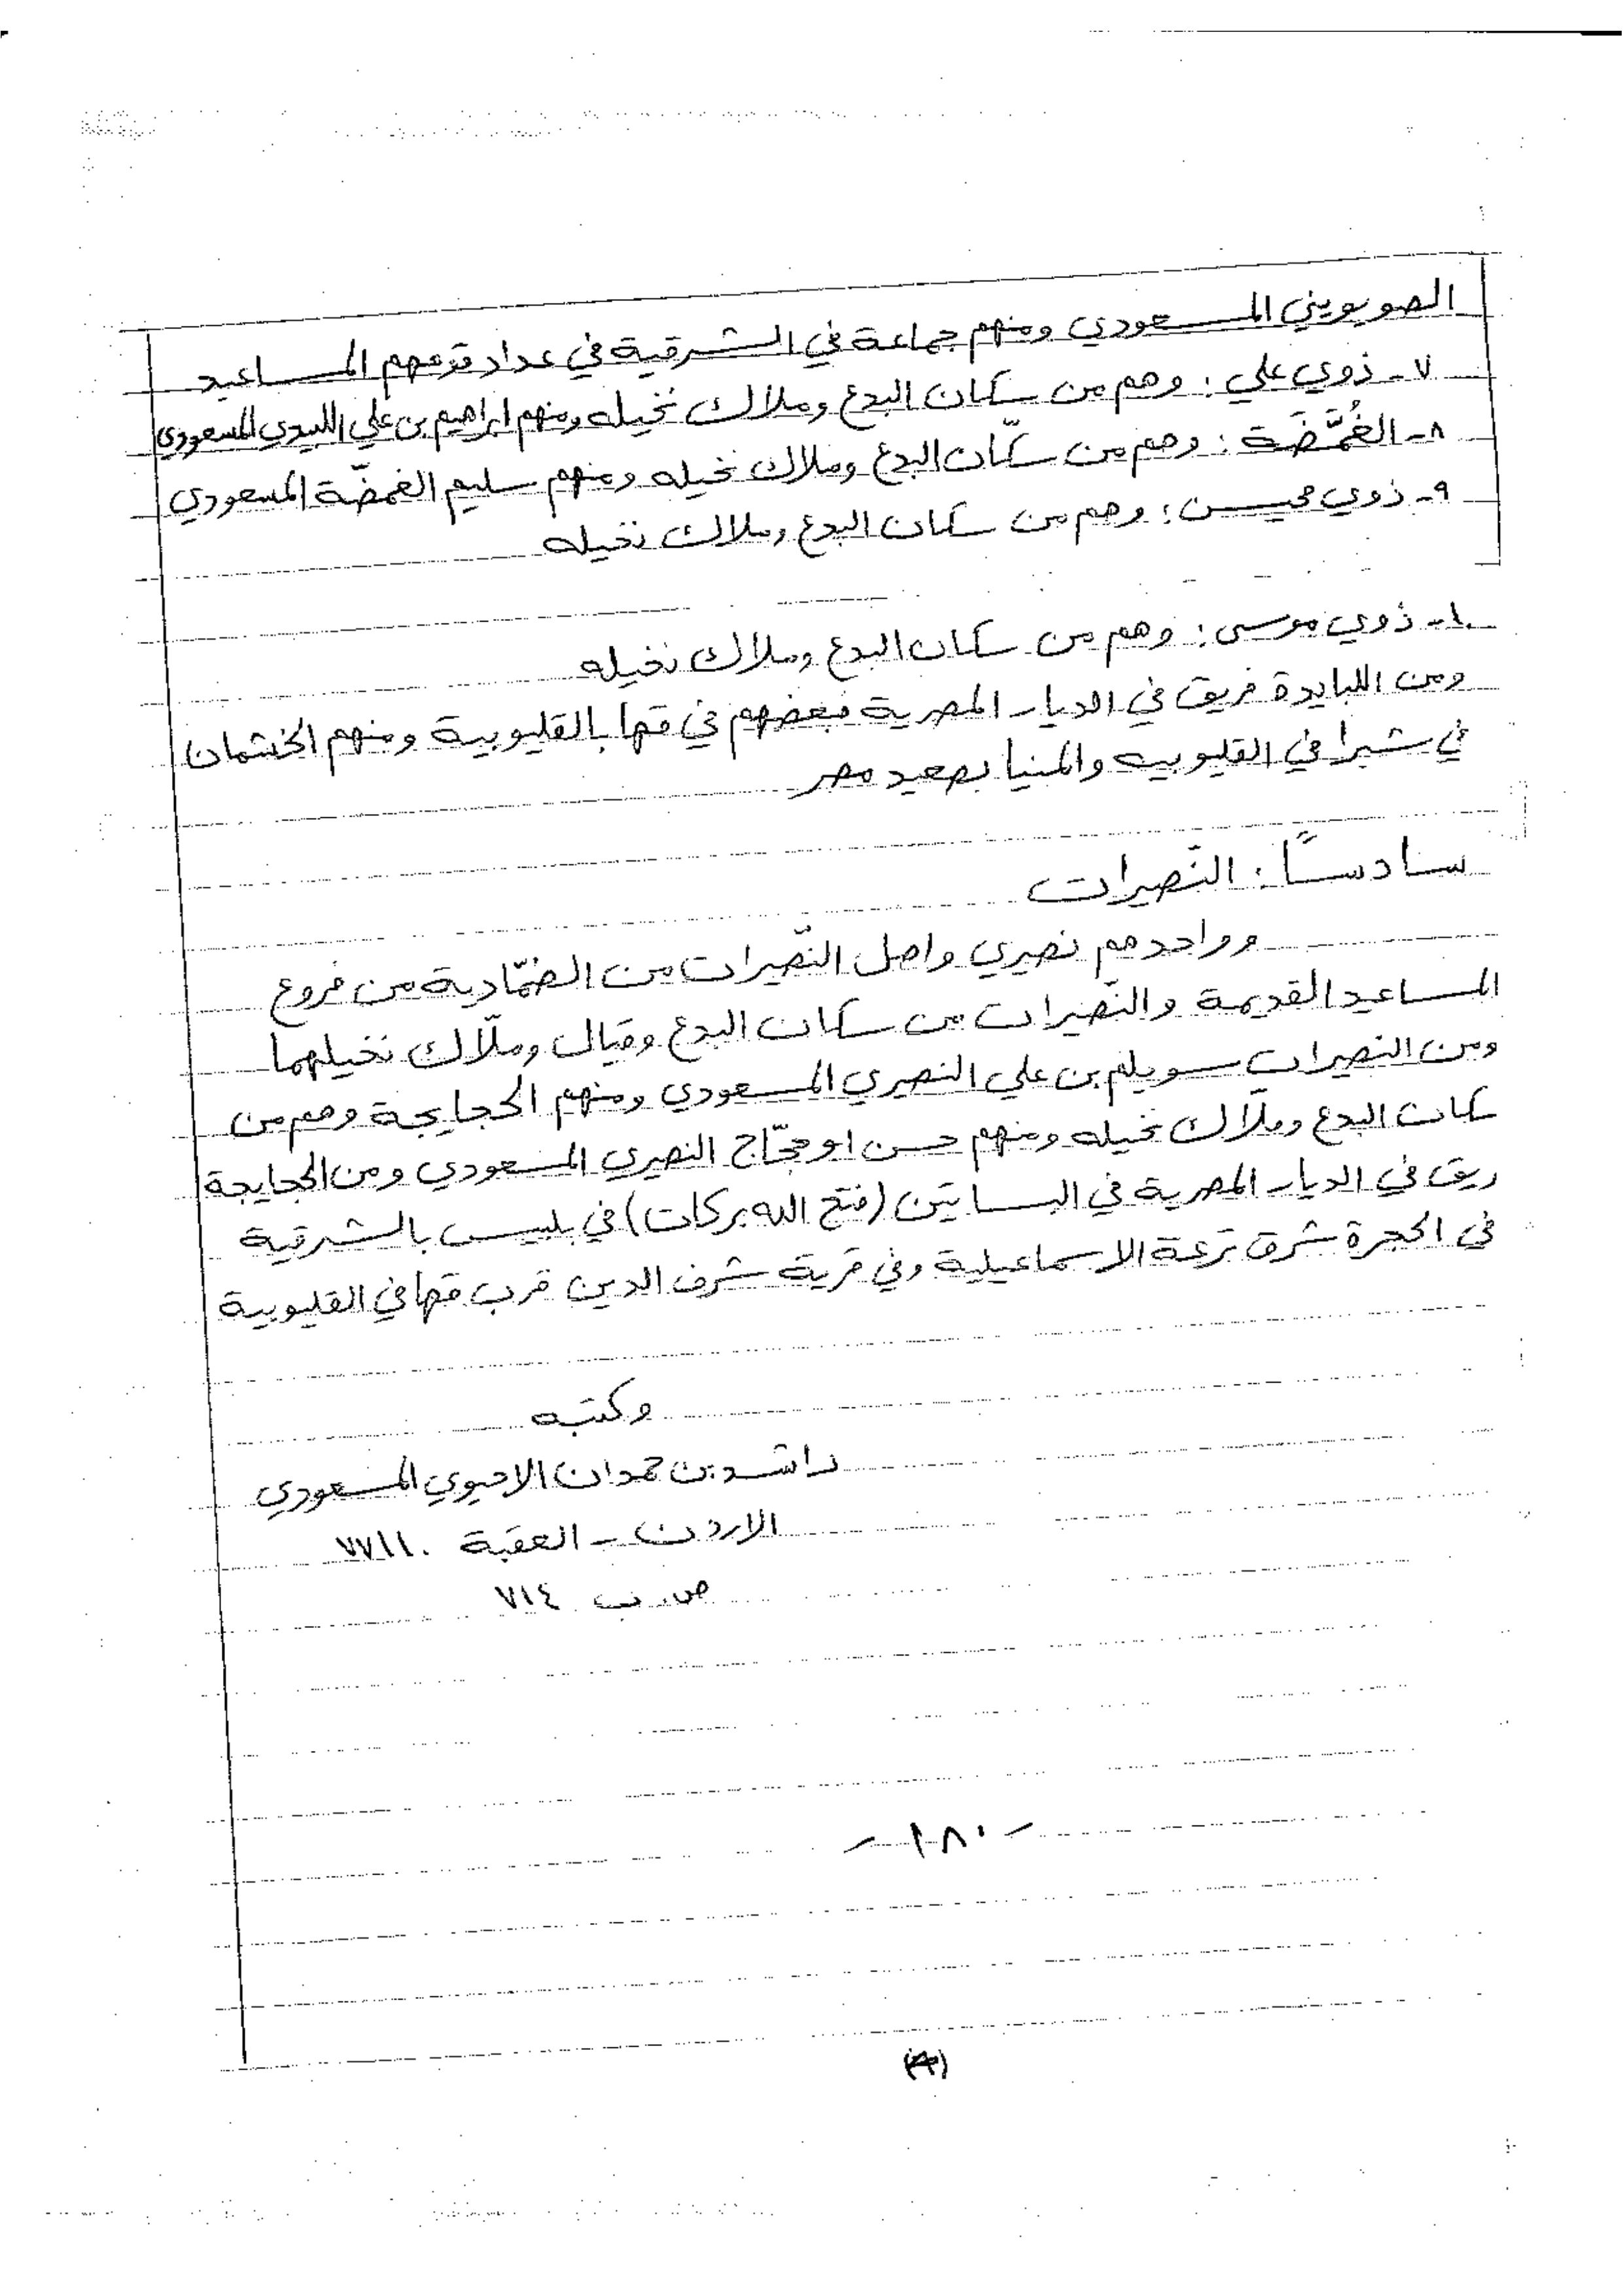 الصويويني المسعودي ومنهم جماعة في الشرقية في عداد قومهم المساعيد
٧- ذوي علي : وهم من سكان البدع وملاك نخيله ومنهم ابراهيم بن علي اللبيدي المسعودي
٨- الغُمَّضَة : وهم من سكّان البدع وملاك نخيله ومنهم سليم الغمضّة المسعودي
٩- ذوي محيسن : وهم من سكان البدع وملاك نخيله
١٠- ذوي موسى : وهم من سكان البدع وملاك نخيله
ومن اللبايدة فريق في الديار المصرية فبعضهم في قها بالقليوبية ومنهم الخشمان
في شبرا في القليوبيه والمنيا بصعيد مصر
سادسًا : النّصيرات
وواحدهم نصيري واصل النّصيرات من الضمّادية من فروع
المساعيد القديمة والنّصيرات من سكان البدع وقيال وملّاك نخيلهما
ومن النصيرات سويلم بن علي النصيري المسعودي ومنهم الحجايجة وهم من
سكان البدع وملّاك نخيله ومنهم حسن ابو حجّاج النصيري المسعودي ومن الحجايجة
ريق في الديار المصرية في البساتين (فتح الله بركات) في بلبيس بالشرقية
في الحجرة شرق ترعة الاسماعيلية وفي قرية شرف الدين قرب قها في القليوبية
وكتبه
راشد بن حمدان الاحيوي المسعودي
الاردن - العقبة ٧٧١١٠
ص.ب ٧١٤
- ١٨٠ -